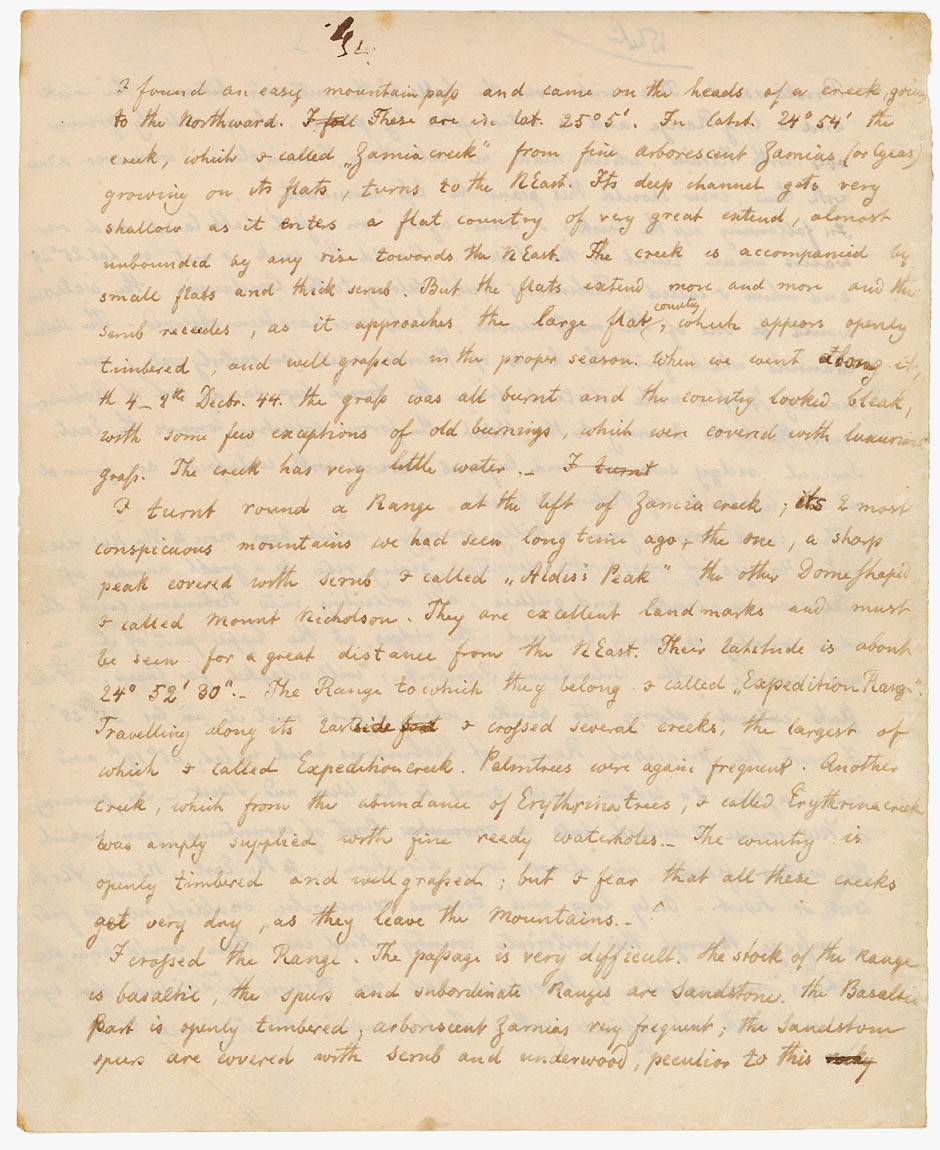 I found an easy mountainpass and came on the heads of a creek, going
to the Northward. I foll These are in lat. 25°5'. In latit. 24°54' the
creek, which I called „Zamia creek" from fine arborescent Zamias (or Cycas)
growing on its flats, turns to the NEast. Its deep channel gets very
shallow as it enters a flat country of very great extend, almost
unbounded by any rise towards the NEast. The creek is accompanied by
small flats and thick scrub. But the flats extend more and more and the
country
scrub recedes, as it approaches the large flat, which appears openly
timbered, and well grassed in the proper season. When we went along it,
th 4_ 8th Decbr. 44. the grass was all burnt and the country looked bleak,
with some few exceptions of old burnings, which were covered with luxuriant
grass. The creek has very little water._ I turnt
I turnt round a Range at the left of Zamia creek; its 2 most
conspicuous mountains we had seen long time ago, the one, a sharp
peak covered with scrub I called „Aldis's Peak" the other Domeshaped
I called Mount Nicholson. They are excellent landmarks and must
be seen for a great distance from the NEast. Their latitude is about
24° 52' 30"._ The Range to which they belong I called „Expedition Range".
Travelling along its Eastside foot I crossed several creeks, the largest of
which I called Expeditioncreek. Palmtrees were again frequent. Another
creek, which from the abundance of Erythrina trees, I called Erythrina creek
was amply supplied with fine reedy waterholes._ The country is
openly timbered and wellgrassed; but I fear that all these creeks
get very dry, as they leave the Mountains._
I crossed the Range. The passage is very difficult. The stock of the Range
is basaltic, the spurs and subordinate Ranges are Sandstone. The Basaltic
Part is openly timbered, arborescent Zamias very frequent; the Sandstone
spurs are covered with scrub and underwood, peculiar to this rocky